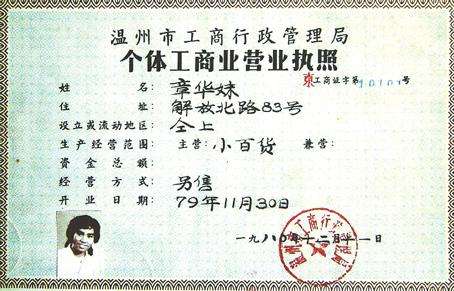 温州市工商行政管理局
个体工商业营业执照
工商证字第10101号
姓名：章华妹
住址：解放北路83号
设立或流动地区：仝上
生产经营范围：主营：小百货 兼营：
资金总额：
经营方式：另售
开业日期：79年11月30日
一九八〇年十二月十一日
温州市工商行政管理局